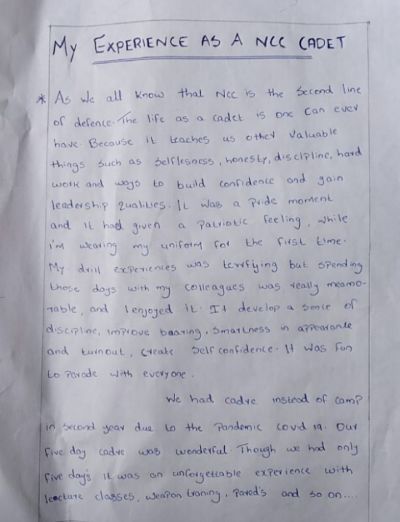 My EXPERIENCE AS A NCC CADET
* As we all know that NCC is the second line
of defence. The life as a cadet is one can ever
have. Because it teaches us other valuable
things such as selflesness, honesty, discipline, hard
work and ways to build confidence and gain
leadership qualities. It was a pride moment
and it had given a patriotic feeling, while
i'm wearing my uniform for the first time.
My drill experiences was terrifying but spending
those days with my colleagues was really meamo-
rable, and I enjoyed it. It develop a sense of
discipline, improve bearing, smartness in appearance
and turnout, create self confidence. It was fun
to parade with everyone.
We had cadre instead of camp
in second year due to the pandemic covid 19. Our
five day cadre was wonderful. Though we had only
five days it was an unforgettable experience with
leacture classes, weapon traning, parod's and so on....